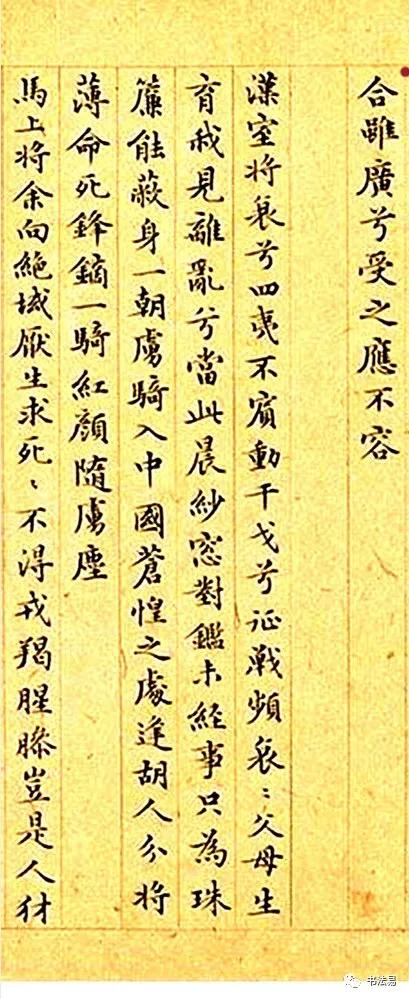 合雖廣兮受之應不容
漢室将衰兮四夷不賓動干戈兮征戰頻哀〻父母生
育我見離亂兮當此晨紗窓對鑑未經事只為珠
簾能蔽身一朝虜騎入中國蒼惶之處逢胡人分将
薄命死鋒鏑一騎紅顔隨虜塵
馬上将余向絶域厭生求死〻不得戎羯腥膻豈是人犲
书法易